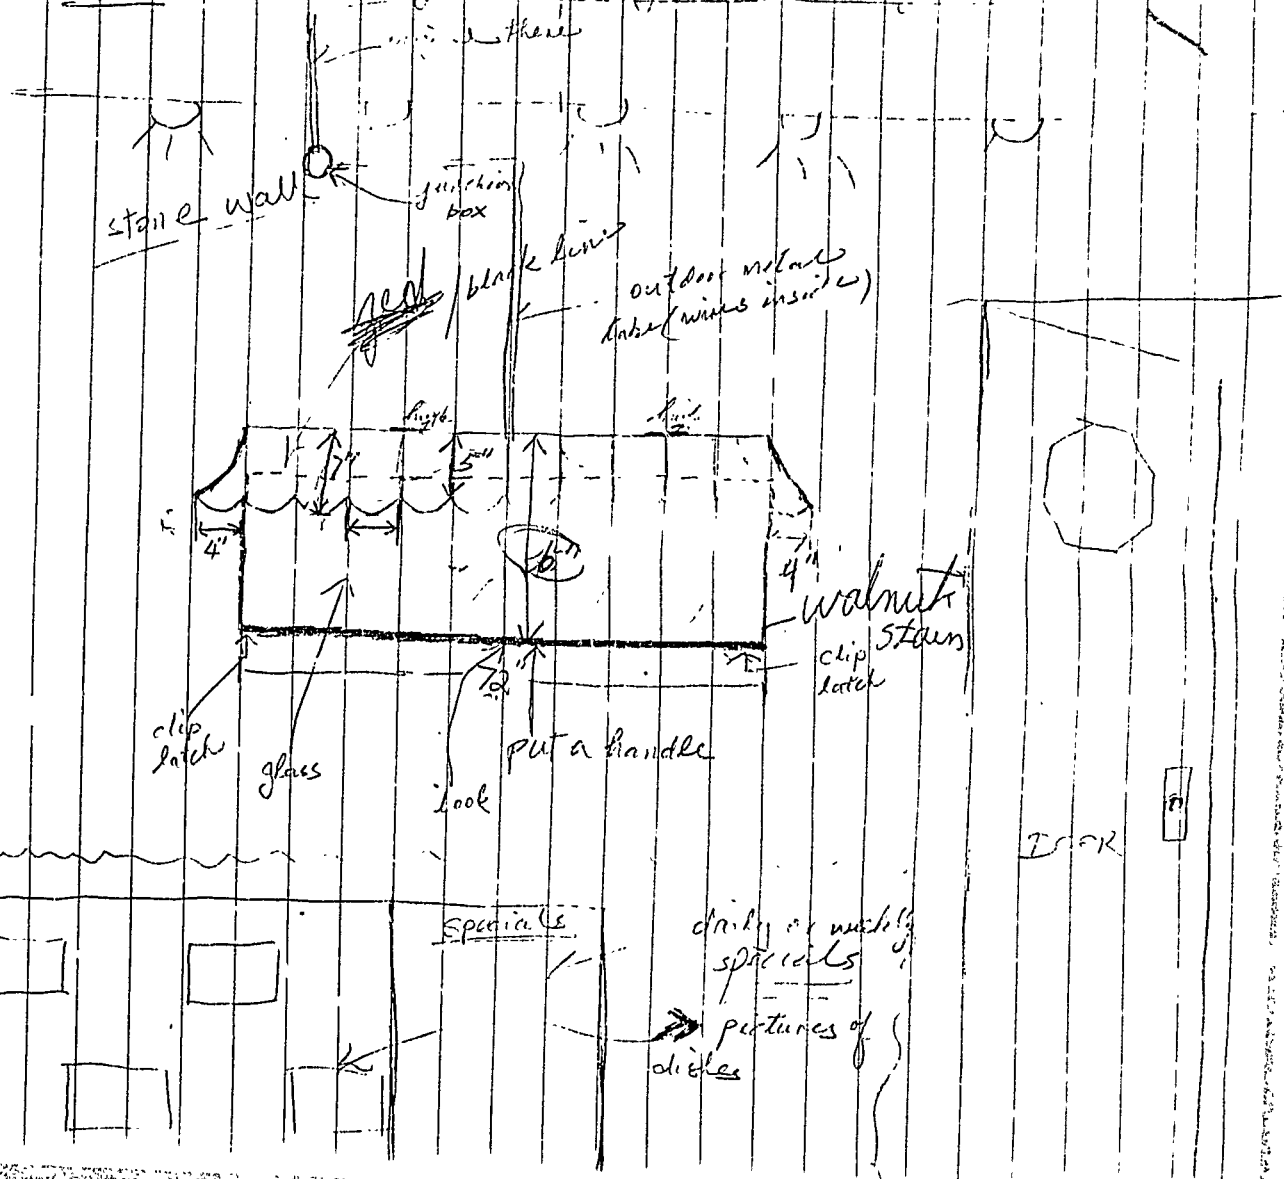 there
stone wall
junction
box
black lines
outdoor metal
tube (wires inside)
7"
5"
4"
4"
walnut
stain
clip
latch
72"
clip
latch
glass
put a handle
look
DOOR
specials
daily or weekly
specials
pictures of
dishes